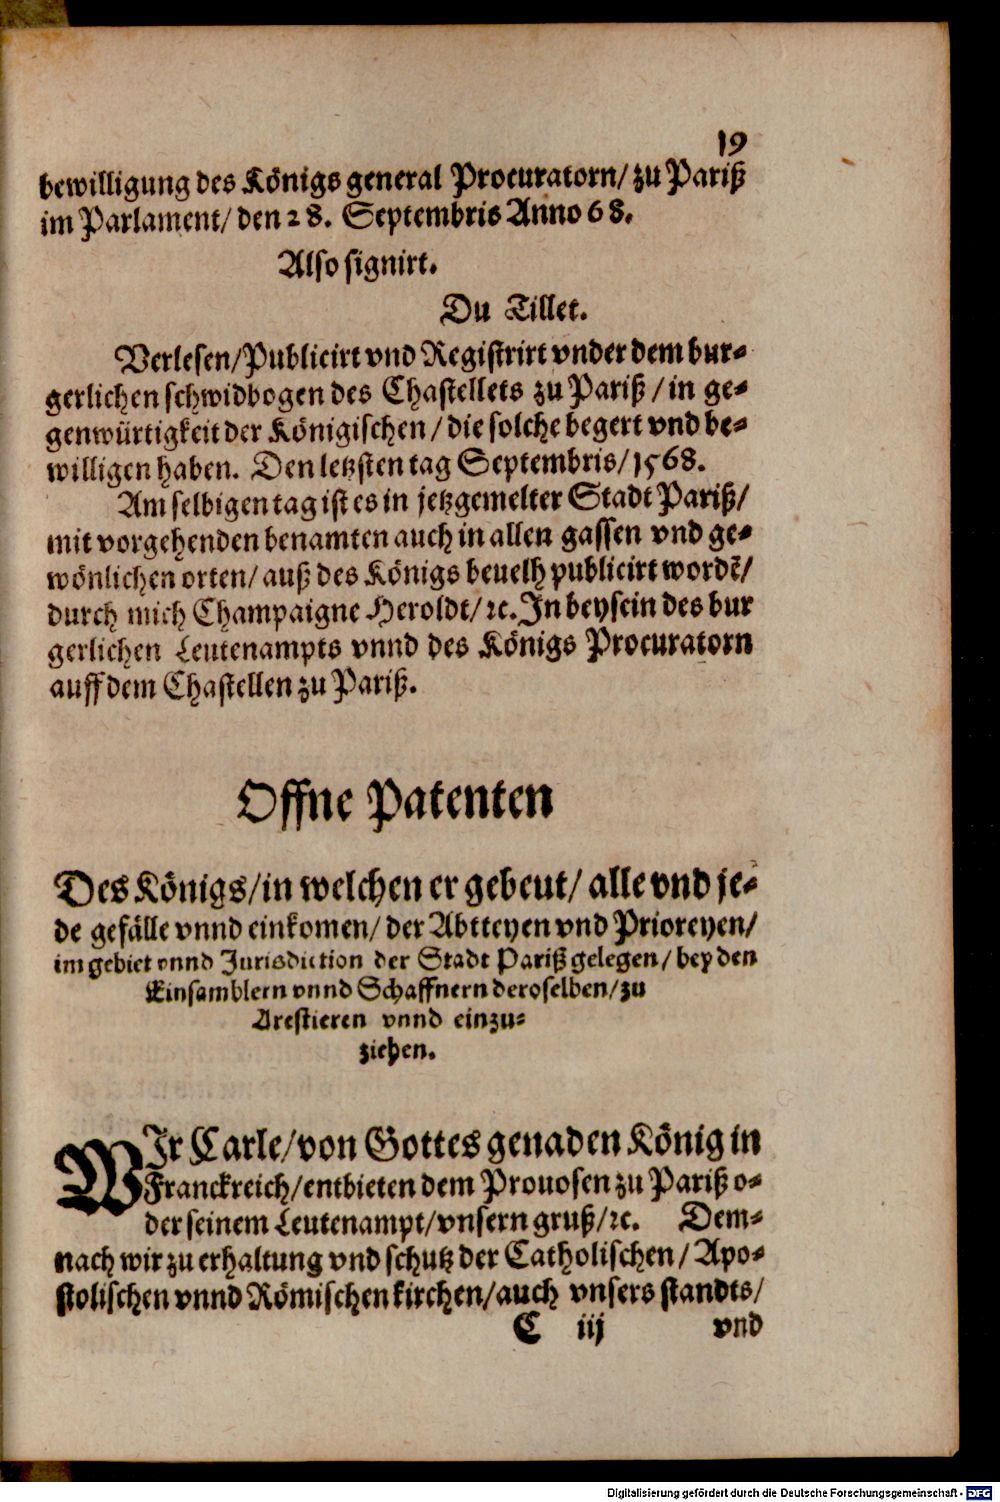 19
bewilligung des Königs general Procuratorn/ zu Pariß
im Parlament/ den 28. Septembris Anno 68.
Also signirt.
Du Tillet.
Verlesen/Publicirt vnd Registrirt vnder dem bur-
gerlichen schwidbogen des Chastellets zu Pariß / in ge-
genwürtigkeit der Königischen / die solche begert vnd be-
willigen haben. Den letzsten tag Septembris/ 1568.
Am selbigen tag ist es in jetzgemelter Stadt Pariß/
mit vorgehenden benamten auch in allen gassen vnd ge-
wönlichen orten/ auß des Königs beuelh publicirt wordē/
durch mich Champaigne Heroldt/ ꝛc. In beysein des bur
gerlichen Leutenampts vnnd des Königs Procuratorn
auff dem Chastellen zu Pariß.
Offne Patenten
Des Königs/in welchen er gebeut/ alle vnd je-
de gefälle vnnd einkomen/ der Abtteyen vnd Prioreyen/
im gebiet vnnd Jurisdiction der Stadt Pariß gelegen/ bey den
Einsamblern vnnd Schaffnern deroselben/ zu
Arestieren vnnd einzu-
ziehen.
WIr Carle/von Gottes genaden König in
Franckreich/entbieten dem Prouosen zu Pariß o-
der seinem Leutenampt/vnsern gruß/ꝛc. Dem-
nach wir zu erhaltung vnd schutz der Catholischen/ Apo-
stolischen vnnd Römischen kirchen/auch vnsers standts/
C iij vnd
Digitalisierung gefördert durch die Deutsche Forschungsgemeinschaft - DFG